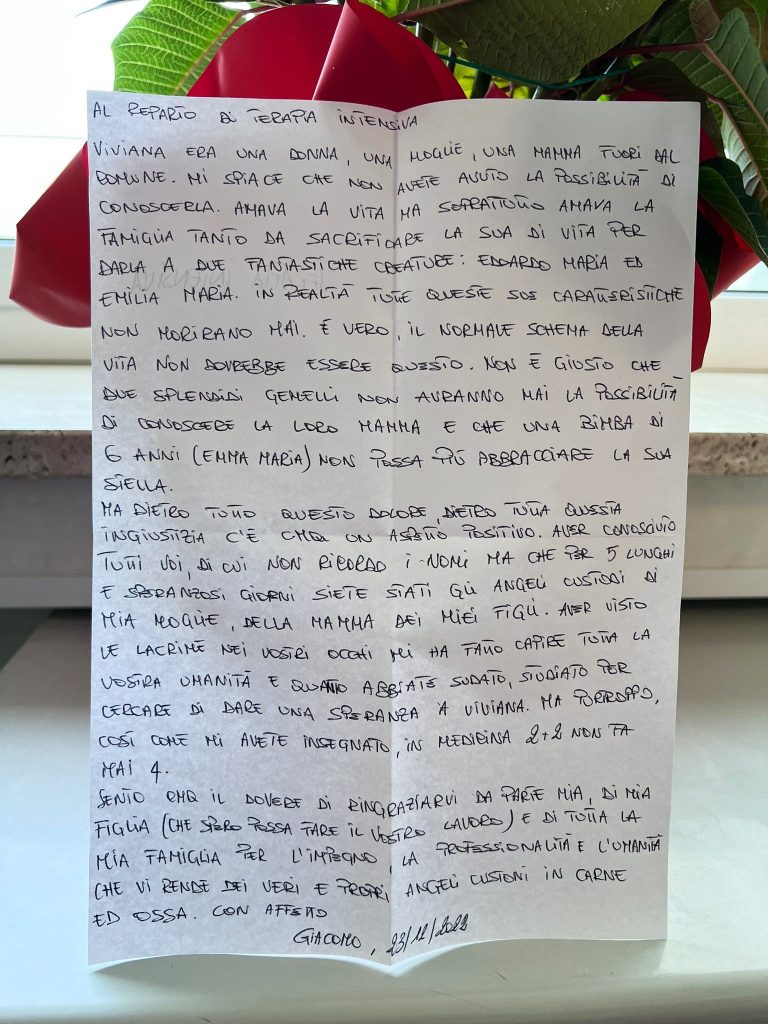 AL REPARTO DI TERAPIA INTENSIVA
VIVIANA ERA UNA DONNA, UNA MOGLIE, UNA MAMMA FUORI DAL
COMUNE. MI SPIACE CHE NON AVETE AVUTO LA POSSIBILITÀ DI
CONOSCERLA. AMAVA LA VITA MA SOPRATTUTTO AMAVA LA
FAMIGLIA TANTO DA SACRIFICARE LA SUA DI VITA PER
DARLA A DUE FANTASTICHE CREATURE: EDOARDO MARIA ED
EMILIA MARIA. IN REALTÀ TUTTE QUESTE SUE CARATTERISTICHE
NON MORIRANO MAI. É VERO, IL NORMALE SCHEMA DELLA
VITA NON DOVREBBE ESSERE QUESTO. NON É GIUSTO CHE
DUE SPLENDIDI GEMELLI NON AVRANNO MAI LA POSSIBILITÀ
DI CONOSCERE LA LORO MAMMA E CHE UNA BIMBA DI
6 ANNI (EMMA MARIA) NON POSSA PIÙ ABBRACCIARE LA SUA
STELLA.
MA DIETRO TUTTO QUESTO DOLORE, DIETRO TUTTA QUESTA
INGIUSTIZIA C'È CMQ UN ASPETTO POSITIVO. AVER CONOSCIUTO
TUTTI VOI, DI CUI NON RICORDO I NOMI MA CHE PER 5 LUNGHI
E SPERANZOSI GIORNI SIETE STATI GLI ANGELI CUSTODI DI
MIA MOGLIE, DELLA MAMMA DEI MIEI FIGLI. AVER VISTO
LE LACRIME NEI VOSTRI OCCHI MI HA FATTO CAPIRE TUTTA LA
VOSTRA UMANITÀ E QUANTO ABBIATE SUDATO, STUDIATO PER
CERCARE DI DARE UNA SPERANZA A VIVIANA. MA PURTROPPO,
COSÌ COME MI AVETE INSEGNATO, IN MEDICINA 2+2 NON FA
MAI 4.
SENTO CMQ IL DOVERE DI RINGRAZIARVI DA PARTE MIA, DI MIA
FIGLIA (CHE SPERO POSSA FARE IL VOSTRO LAVORO) E DI TUTTA LA
MIA FAMIGLIA PER L'IMPEGNO, LA PROFESSIONALITÀ E L'UMANITÀ
CHE VI RENDE DEI VERI E PROPRI ANGELI CUSTONI IN CARNE
ED OSSA. CON AFFETTO
GIACOMO, 23/12/2022